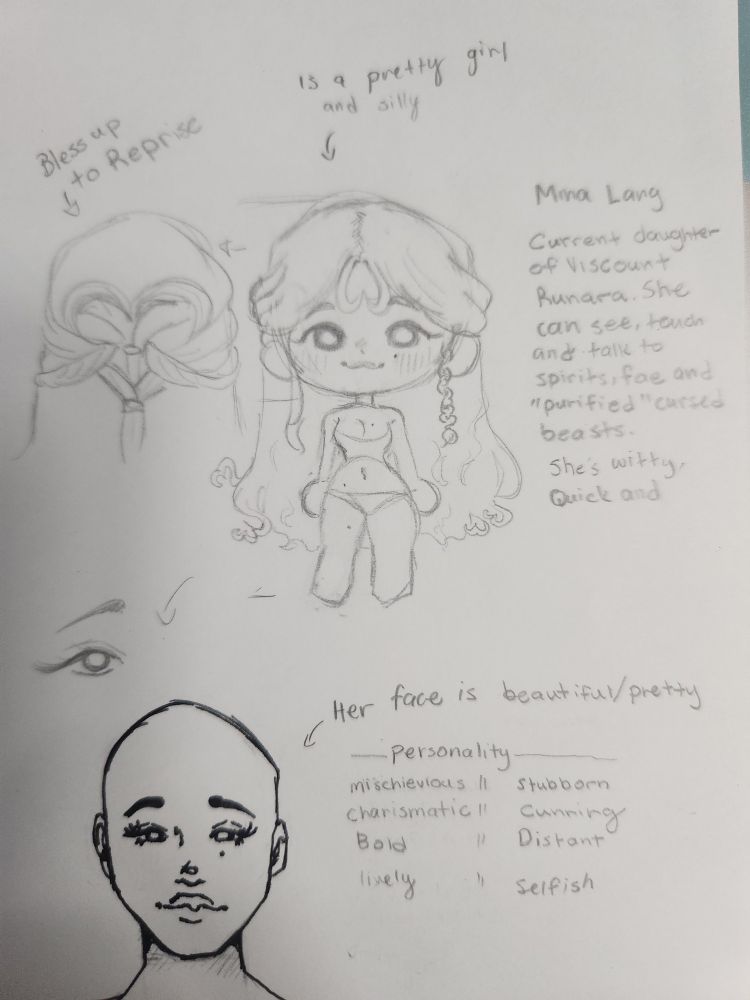 Is a pretty girl
and silly
Bless up
to Reprise
Mina Lang
Current daughter
of Viscount
Runara. She
can see, touch
and talk to
spirits, fae and
"purified" cursed
beasts.
She's witty,
Quick and
Her face is beautiful/pretty
Personality
mischievious " Stubborn
charismatic " Cunning
Bold " Distant
lively " Selfish